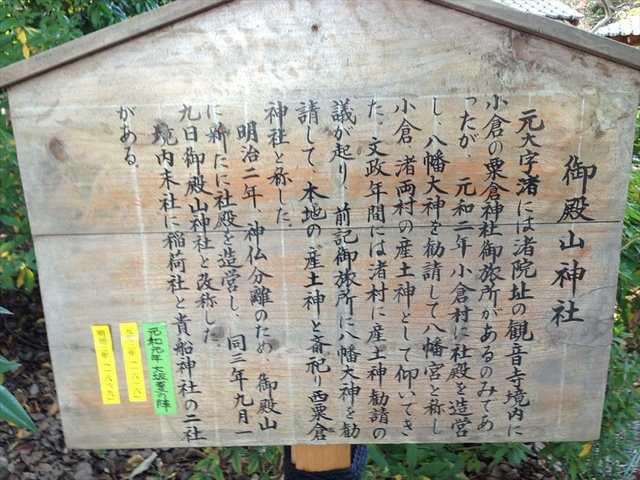 御殿山神社
元大字渚には渚院址の観音寺境内に
小倉の粟倉神社御旅所があるのみであ
ったが、元和二年小倉村に社殿を造営
し、八幡大神を勧請して八幡宮と称し
小倉、渚両村の産土神として仰いてき
た。文政年間には渚村に産土神勧請の
議が起り、前記御旅所に八幡大神を勧
請して、本地の産土神と斎祀り西粟倉
神社と称した。
明治二年、神仏分離のため、御殿山
に新たに社殿を造営し、同三年九月一
九日御殿山神社と改称した。
境内末社に稲荷社と貴船神社の二社
がある。
元和元年大坂夏の陣
元和二年(一六一六)
明治二年(一八六九)